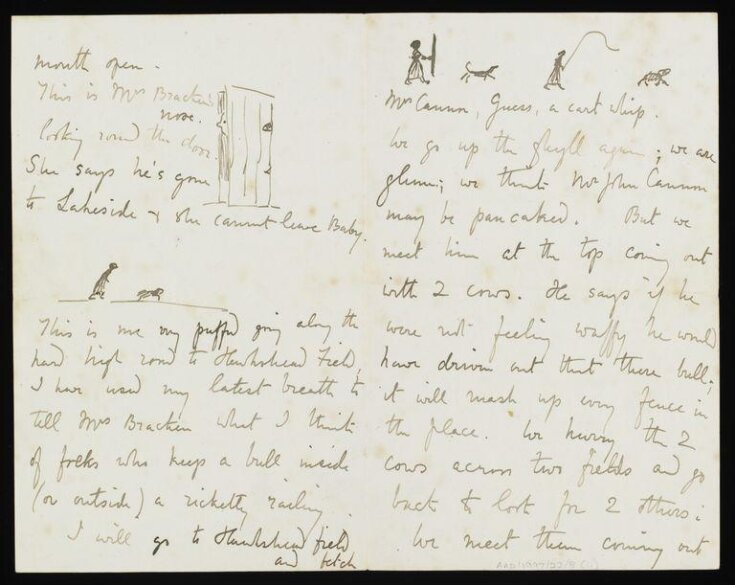 mouth open.
This is Mrs Bracken's
nose.
looking round the door.
She says he's gone
to Lakeside & she cannot leave Baby.
This is me very puffed going along the
hard high road to Hawkshead Field,
I have used my latest breath to
tell Mrs Bracken what I think
of folks who keep a bull inside
(or outside) a ricketty railing.
I will go to Hawkshead field
and fetch
Mrs Cannon, Guess, a cart whip.
We go up the ghyll again; we are
glum; we think Mr John Cannon
may be pancaked. But we
meet him at the top coming out
with 2 cows. He says "if he
were not feeling waffy he would
have driven out that there bull;
it will mash up every fence in
the place. We hurry the 2
cows across two fields and go
back to look for 2 others:
We meet them coming out